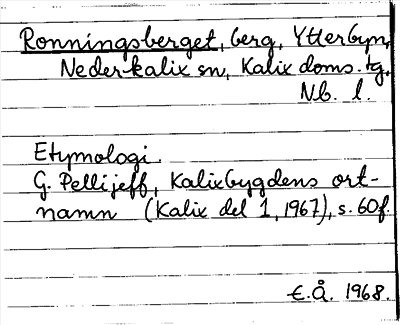 Ronningsberget, berg, Ytterbyn,
Nederkalix sn, Kalix doms. tg,
Nb. l.
Etymologi.
G. Pellijeff, Kalixbygdens ort-
namn (Kalix del 1, 1967), s. 60f.
E.Å. 1968.